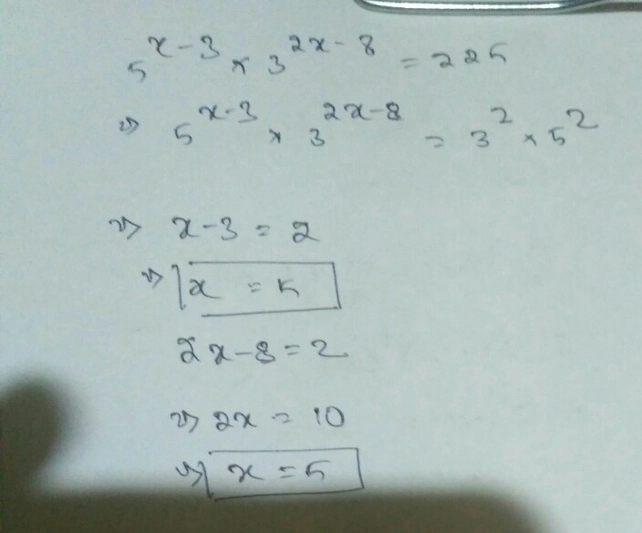 5^{x-3} × 3^{2x-8} = 225
⇒ 5^{x-3} × 3^{2x-8} = 3^2 × 5^2
⇒ x-3 = 2
⇒ x = 5
2x-8 = 2
⇒ 2x = 10
⇒ x = 5